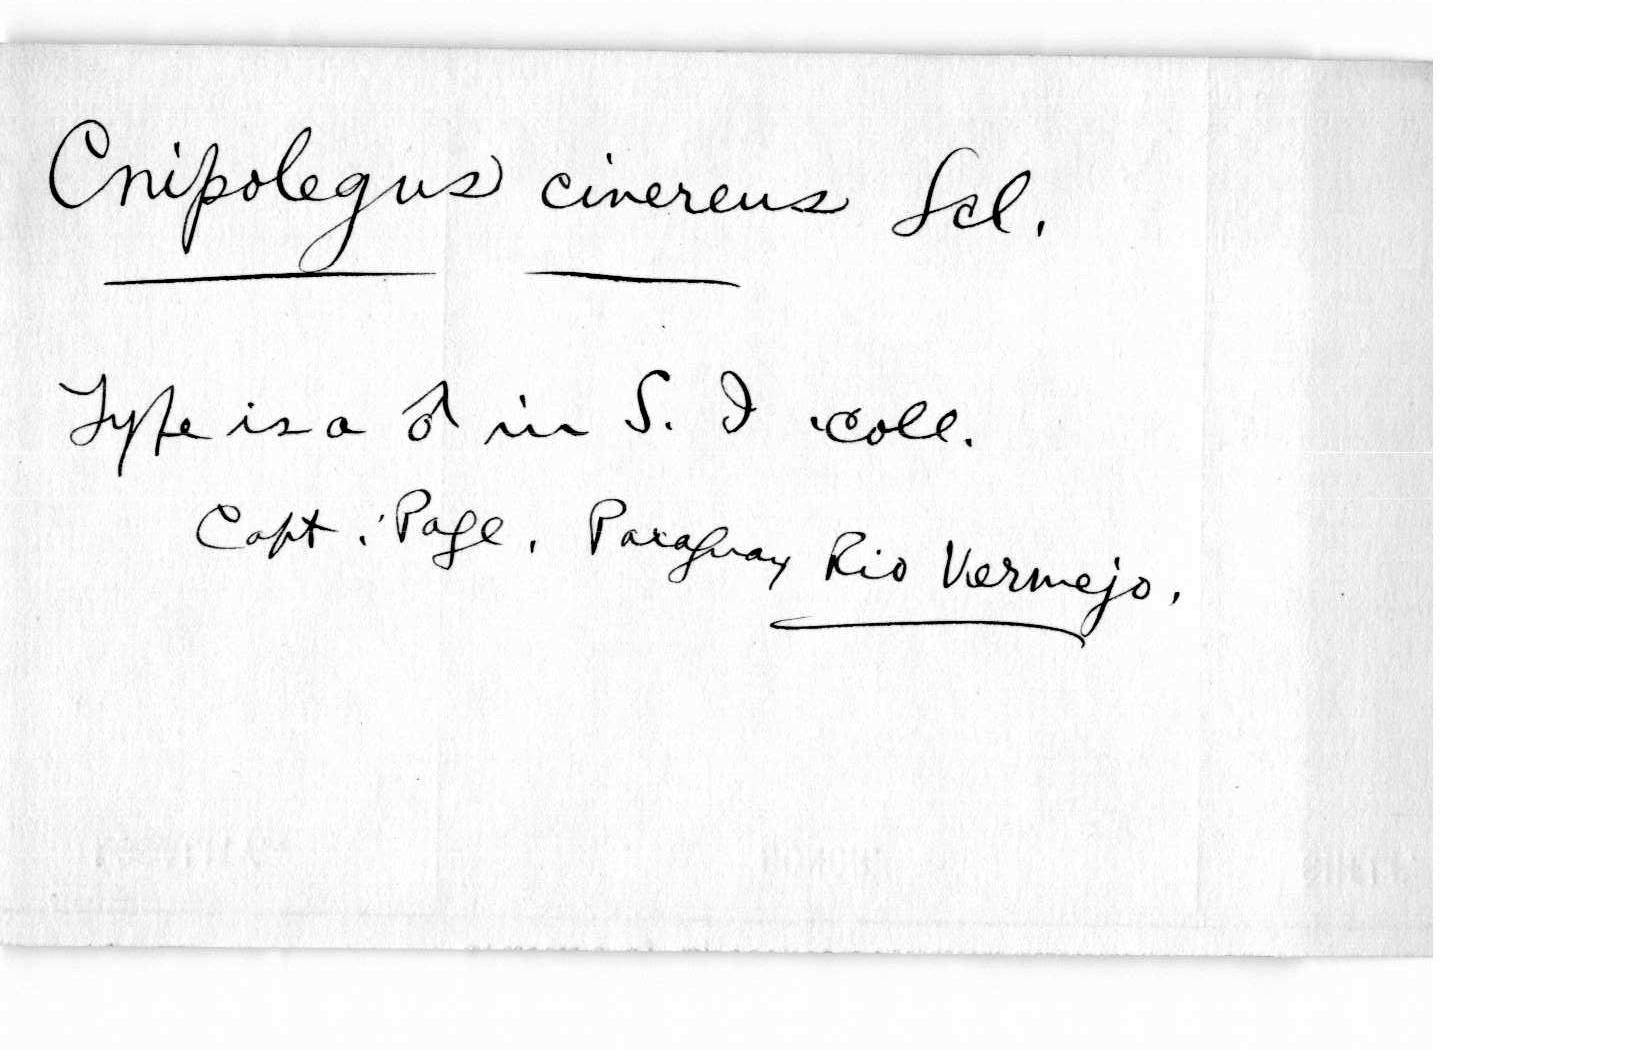 Cnipolegus cinereus Scl.
Type is a ♂ in S. I coll.
Capt. Page, Paraguay Rio Vermejo.